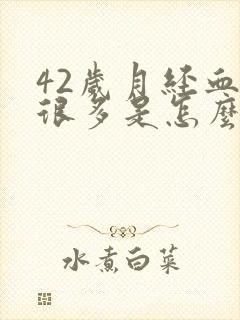 42歲月經血
很多是怎麼
水煮白菜